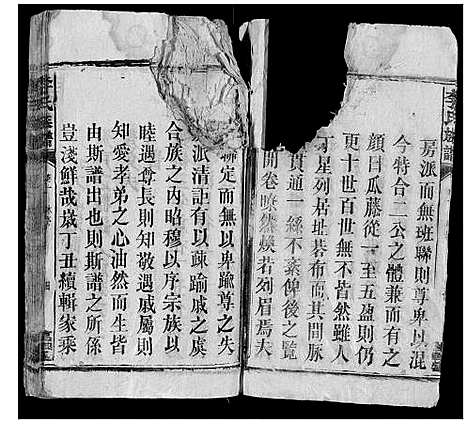 族譜
房派而無班聯則尊卑以混
今特合二公之體兼而有之
顔曰瓜藤從一至五盈則仍
更十世百世無不皆然雖人
星列居址碁布而其間脈
貫通一絲不紊俾後之覽
開卷瞭然燦若列眉焉夫
聯定而無以卑踰尊之失
派清詎有以疎踰戚之虞
合族之內昭穆以序宗族以
睦遇尊長則知敬遇戚屬則
知愛孝弟之心油然而生皆
由斯譜出也則斯譜之所係
豈淺鮮哉歲丁丑續輯家乘
氏族譜